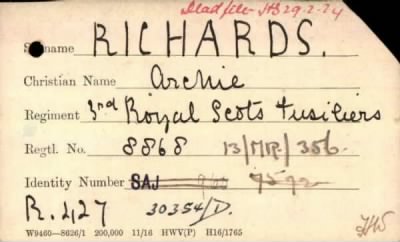 Dead file HB 29-2-24
Surname RICHARDS.
Christian Name Archie
Regiment 3rd Royal Scots Fusiliers
Regtl. No. 8868 13/MR/356
Identity Number SAJ 9592
R.427 30354/D.
W9460—8626/1 200,000 11/16 HWV(P) H16/1765